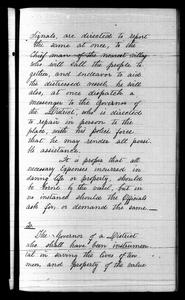 Signals, are directed to report
the same at once, to the
Chief man of the nearest village
who will call the people to-
gether, and endeavor to aid
the distressed vessel, & will
also, at once dispatch a
messenger to the Governor of
the District, who is directed
to repair in person to the
place, with his police force
that he may render all possi-
ble assistance.
It is proper that all
necessary expenses incurred in
saving life or property, should
be borne by the vessel, but in
no instance should the Officials
ask for, or demand the same
The Governor of a District
who shall have been instrumen-
tal in saving the lives of sea-
men, and property of the nation